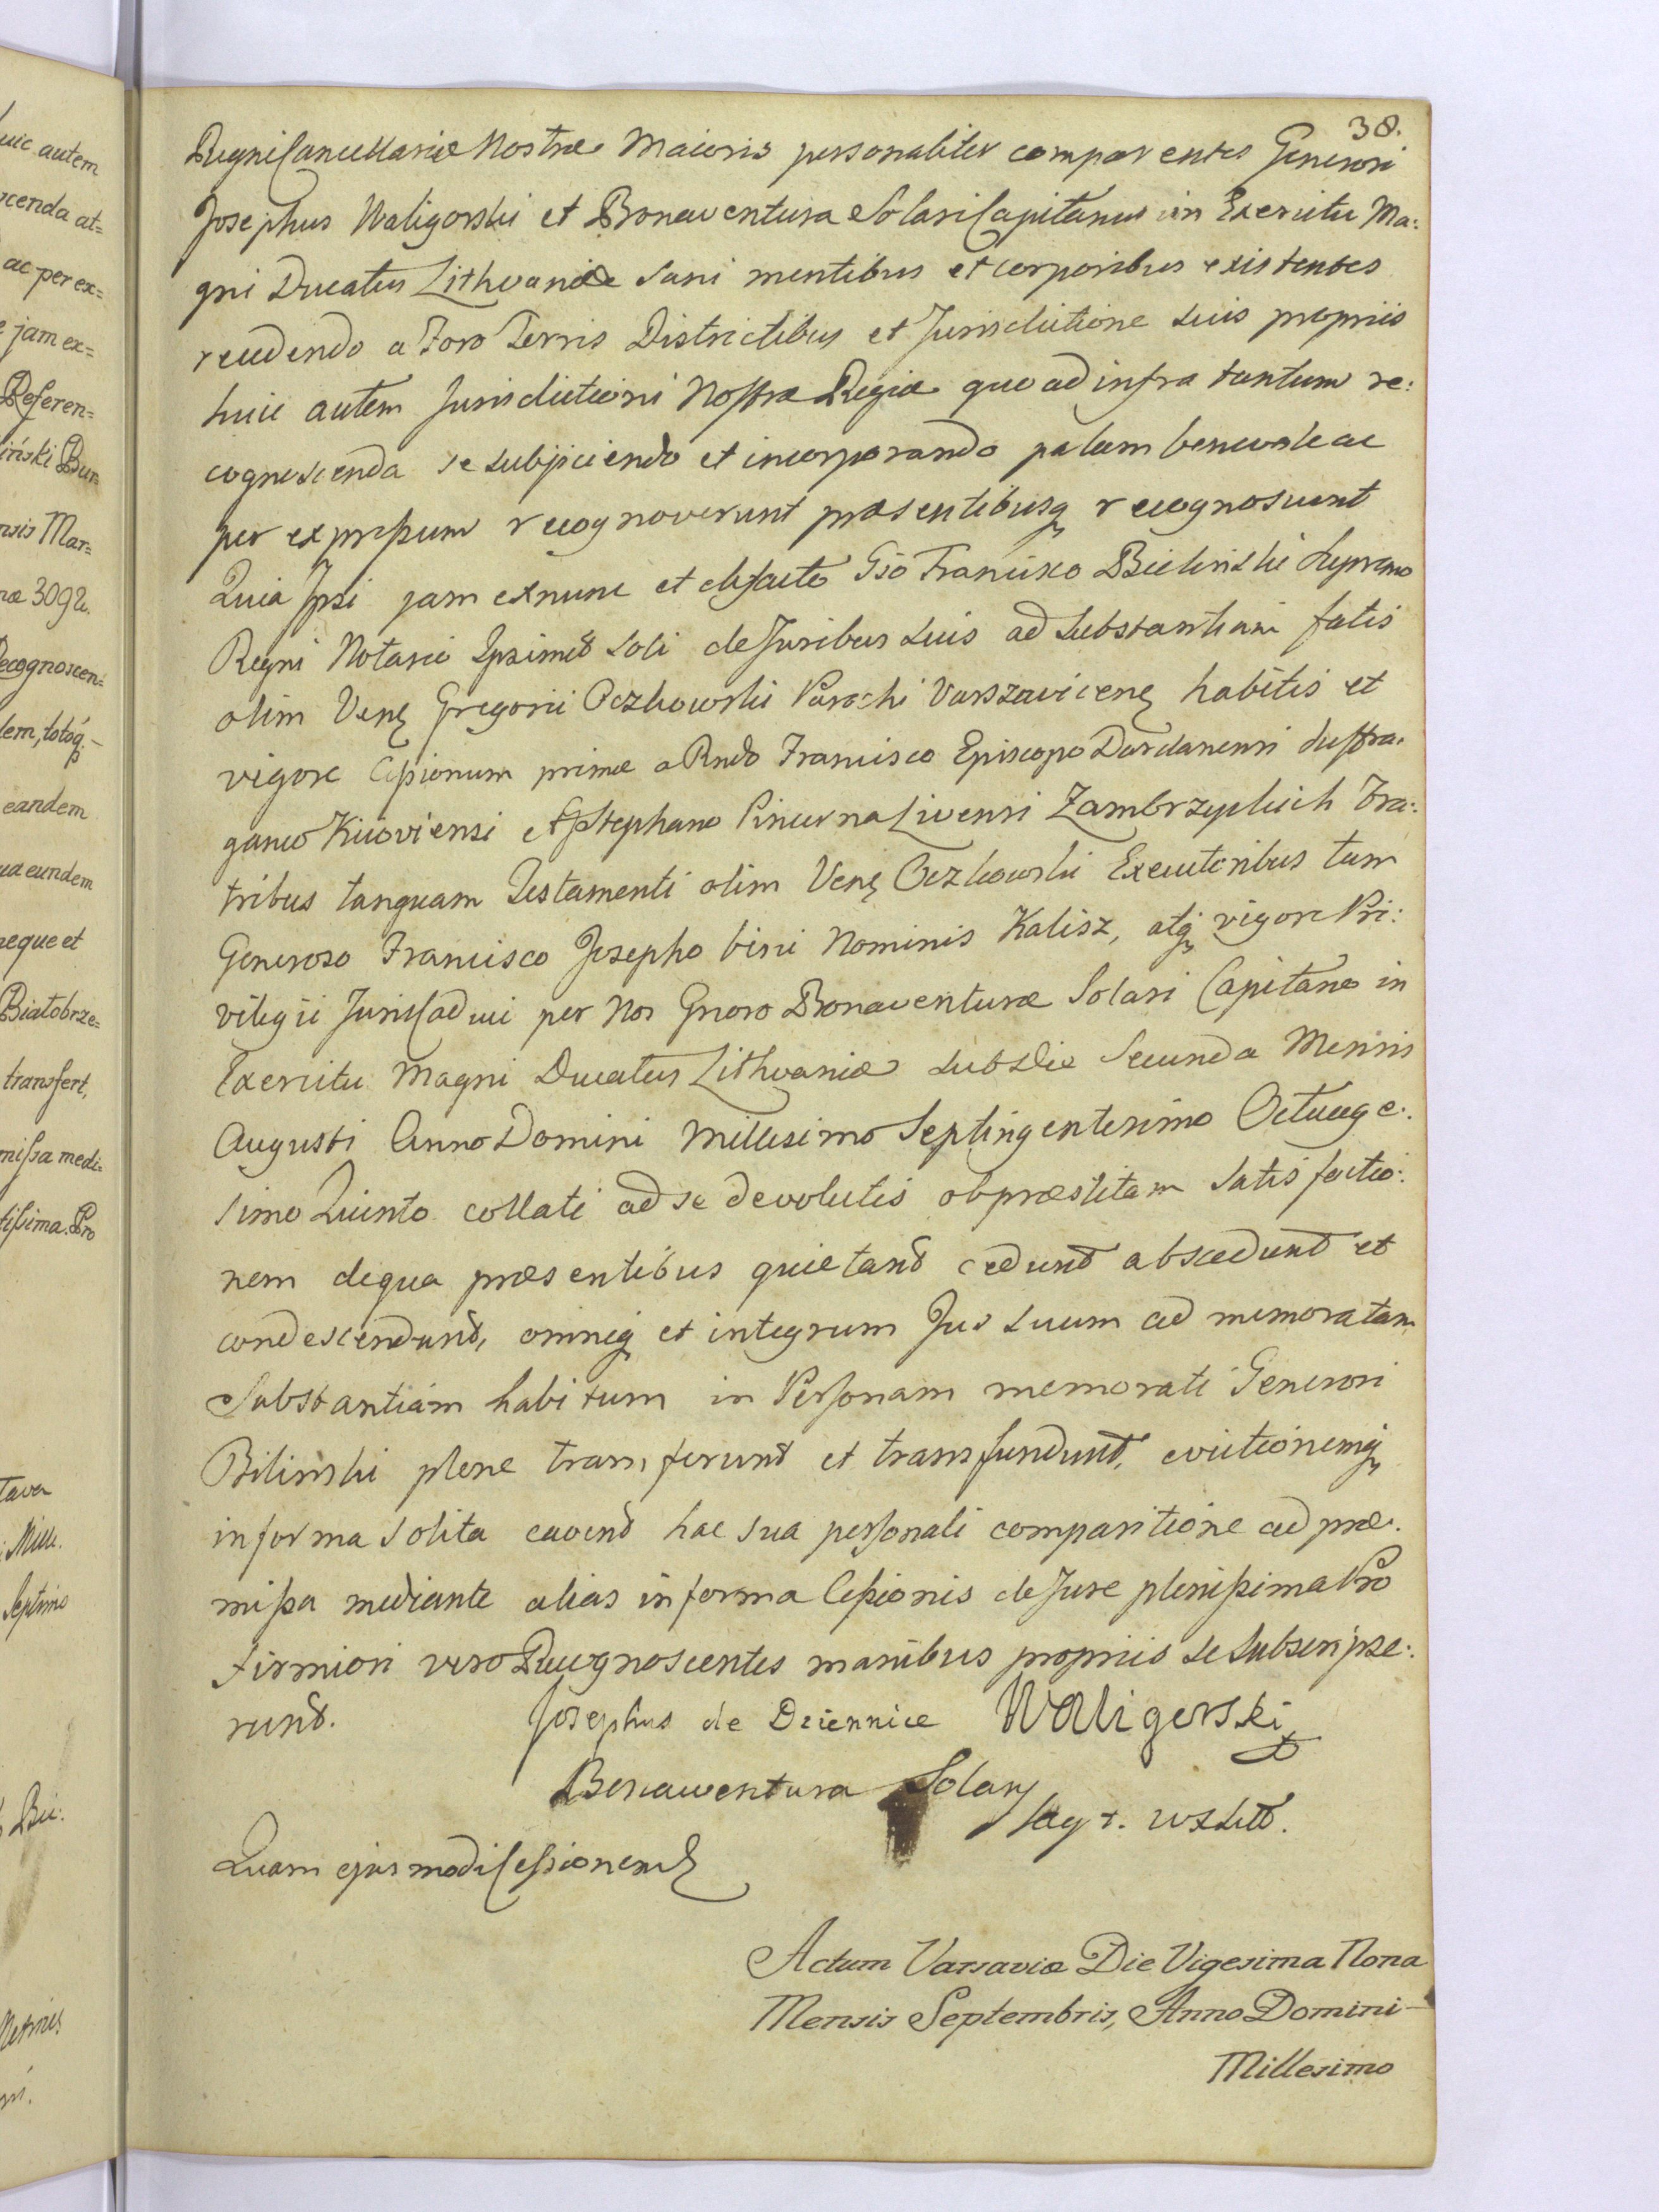 38.
Regni Cancellariæ Nostræ Maioris personaliter comparentes Generosi
Josephus Waligorski et Bonaventura Solari Capitanus in Exercitu Ma:
gni Ducatus Lithvaniæ Sani mentibus et corporibus existentes
recedendo a Foro Terris Districtibus et Jurisdictione suis propriis
huic autem Jurisdictioni Nostræ Regiæ quo ad infra tantum re:
cognoscenda se subjiciendo et incorporando palam benevole ac
per expressum recognoverunt præsentibusq recognoscunt
Quia Ipsi jam exnunc et defacto Gso Francisco Bielinski Supremo
Regni Notario Ipsimet soli de Juribus suis ad Substantiam fatis
olim Veng Gregorii Oczkowski Parochi Varszavicens habitis et
vigore Cessionum primæ a Rndo Francisco Episcopo Dardanensi Suffra:
ganeo Kijoviensi et Stephano Pincerna Livensi Zambrzyckich Fra:
tribus tanquam Testamenti olim Veng Oczkowski Executoribus tum
Generoso Francisco Josepho bini Nominis Kalisz, atq vigore Pri:
vilegii Juris Caduci per Nos Gnoso Bonaventuræ Solari Capitaneo in
Exercitu Magni Ducatus Lithvaniæ sub Die Secunda Mensis
Augusti Anno Domini Millesimo Septingentesimo Octuage:
simo Quinto collati ad se devolutis ob præstitam Satisfactio:
nem de qua præsentibus quietant cedunt abscedunt et
condescendunt, omneq et integrum Jus suum ad memoratam
Substantiam habitum in Personam memorati Generosi
Bilinski plene transferunt et transfundunt, evictionemq
in forma solita cavent hac sua personali comparitione ad præ:
missa mediante alias in forma Cessionis de Jure plenissima Pro
firmiori vero Recognoscentes manibus propriis se subscripse:
runt. Josephus de Dziennice Waligorski
Bonawentura Solary
Quam ejusmodi Cessionem
Actum Varsaviæ Die Vigesima Nona
Mensis Septembris, Anno Domini
Millesimo